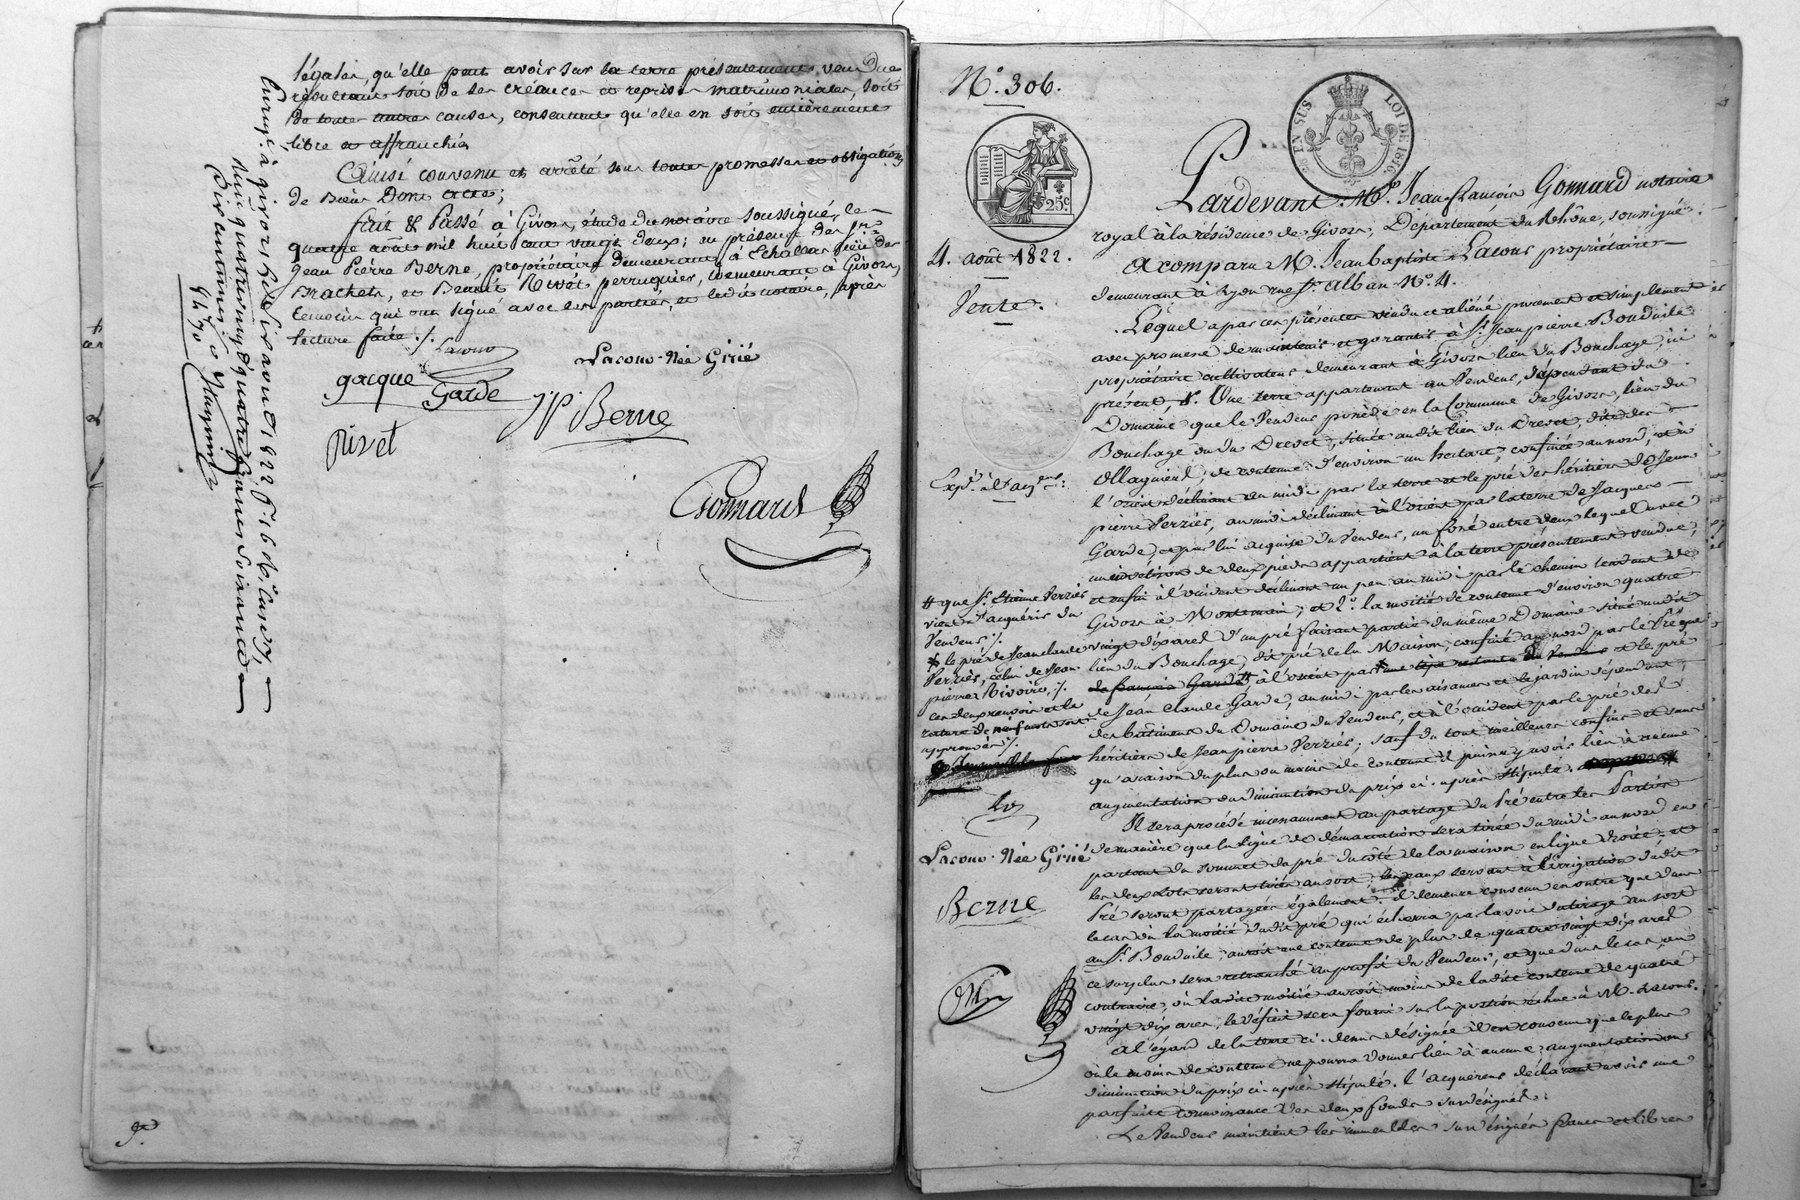 légales, qu'elle peut avoir sur la terre présentement vendue
résultant soit de ses créances et reprises matrimoniales, soit
de toutes autres causes, consentant qu'elle en soit entièrement
libre et affranchie
Ainsi convenu et arrêté sous toutes promesses et obligations
de Bien Dont acte;
fait & Passé à Givors, étude du notaire soussigné, le
quatre août mil huit cent vingt deux; en présence des Srs
Jean Pierre Berne, propriétaire demeurant à Echallas lieu des
Brachets, et Benoit Rivet perruquier, demeurant à Givors,
témoins qui ont signé avec les parties, et ledit notaire, après
lecture faite ./.
Lacour
Lacour née Girié
Jacque
Garde
JP Berne
Rivet
Gonnard
Enregé à givors le six aout 1822 fo 161
quatre francs soixante
dix centimes
4f 70
No. 306.
EN SUS
LOI DE 1816.
25c
4. août 1822.
Vente.
Pardevant Me. Jean françois Gonnard notaire
royal à la résidence de Givors, Département du Rhône, soussigné.
A comparu M. Jean Baptiste Lacour propriétaire
demeurant à Lyon rue St. alban No. 4.
Lequel a par ces présentes vendu et aliéné purement et simplement
avec promesse de maintenir et garantir à Sr. Jean pierre Bouduile
propriétaire cultivateur demeurant à Givors lieu du Bouchage, ici
présent, 1o. Une terre appartenant au Vendeur, dépendant du
Domaine que le Vendeur possède en la Commune de Givors, lieu du
Bouchage ou du Drevet, située audit lieu du Drevet, dite des
Ollagnier, de contenue d'environ un hectare, confinée au nord, et à
l'orient déclinant au midi par la terre et le pré des héritiers de Jean
pierre Verziés, au midi déclinant à l'orient par la terre de Jacques
Garde, et par lui acquise du Vendeur, un fossé entre deux lequel avec
un invétison de deux pieds appartient à la terre présentement vendue,
et enfin à l'occident déclinant un peu au midi par le chemin tendant de
Givors à Montemain; et 2o. la moitié de contenue d'environ quatre
vingt dix ares d'un pré faisant partie du même Domaine situé audit
lieu du Bouchage, dit pré de la Maison, confiné au nord par le Pré que
de françois Garde, à l'orient par une terre restante du Vendeur et le pré
de Jean Claude Garde, au midi par les aisances et le jardin dépendant
des bâtimens du Domaine du Vendeur, et à l'occident par le pré des
héritiers de Jean pierre Verziés; sauf du tout meilleurs confins et sans
qu'à raison du plus ou moins de contenue il puisse y avoir lieu à aucune
augmentation ou diminution du prix ci-après stipulé.
Il sera procédé incessamment au partage du Pré entre les Parties
de manière que la ligne de démarcation sera tirée du midi au nord en
partant du sommet du pré du côté de la maison en ligne droite, et
les deux lots seront tirés au sort; les eaux servant à l'irrigation dudit
Pré seront partagées également; il demeure convenu en outre que dans
le cas où la moitié dudit pré qui écherra par la voie du tirage au sort
au Sr. Bouduile, auroit une contenue de plus de quatre vingt dix ares
ce surplus sera retranché au profit du Vendeur, et que dans le cas
contraire, où ladite moitié auroit moins de ladite contenue de quatre
vingt dix ares, le déficit sera fourni sur la portion échue à M. Lacour.
A l'égard de la terre ci-dessus désignée il est convenu que le plus
ou le moins de contenue ne pourra donner lieu à aucune augmentation ou
diminution du prix ci-après stipulé. L'acquéreur déclarant avoir une
parfaite connoissance des deux fonds susdésignés.
Le Vendeur maintient les immeubles susdésignés francs et libres
Expé. à l'acqr.
# que Sr. Etienne Verziés
vient d'acquérir du
Vendeur ./.
le pré de Jean claude
Verziés, celui de Jean
pierre Rivoire, ./.
ces deux renvois et la
rature de neuf mots sont
approuvés ./.
Lacour née Girié
Berne